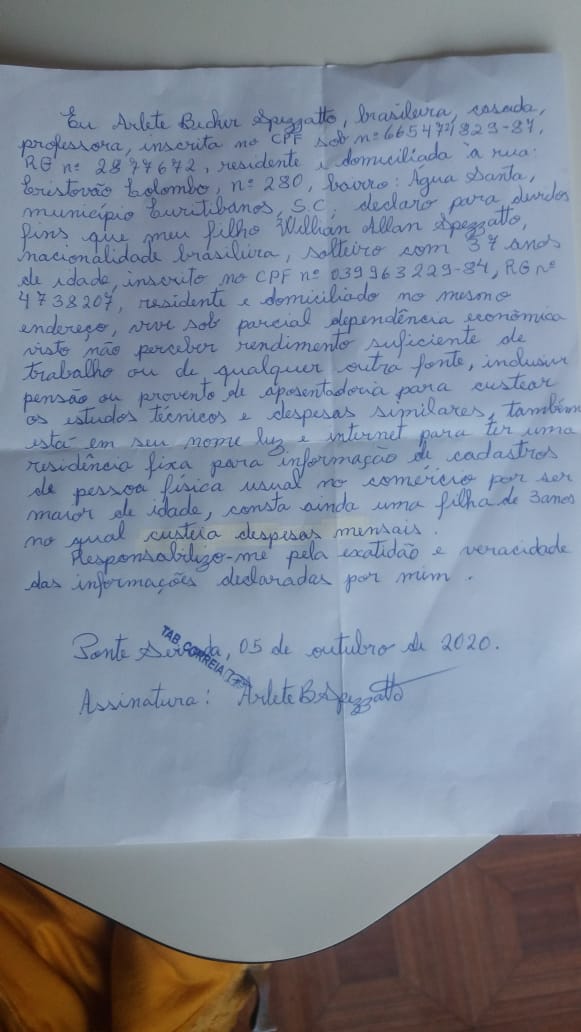 Eu Arlete Becher Spezzatto, brasileira, casada,
professora, inscrita no CPF sob nº 665474829-87,
RG nº 2877672, residente e domiciliada à rua:
Cristovão Colombo, nº 280, bairro: Água Santa,
município Curitibanos, S.C, declaro para devidos
fins que meu filho Willian Allan Spezzatto,
nacionalidade brasileira, solteiro com 37 anos
de idade, inscrito no CPF nº 039963229-84, RG nº
4738207, residente e domiciliado no mesmo
endereço, vive sob parcial dependência econômica
visto não perceber rendimento suficiente de
trabalho ou de qualquer outra fonte, inclusive
pensão ou provento de aposentadoria para custear
os estudos técnicos e despesas similares, também
está em seu nome luz e internet para ter uma
residência fixa para informação de cadastros
de pessoa física usual no comércio por ser
maior de idade, consta ainda uma filha de 3 anos
no qual custeia despesas mensais.
Responsabilizo-me pela exatidão e veracidade
das informações declaradas por mim.
Ponte Serrada, 05 de outubro de 2020.
TAB. CORREIA
Assinatura: Arlete B Spezzatto